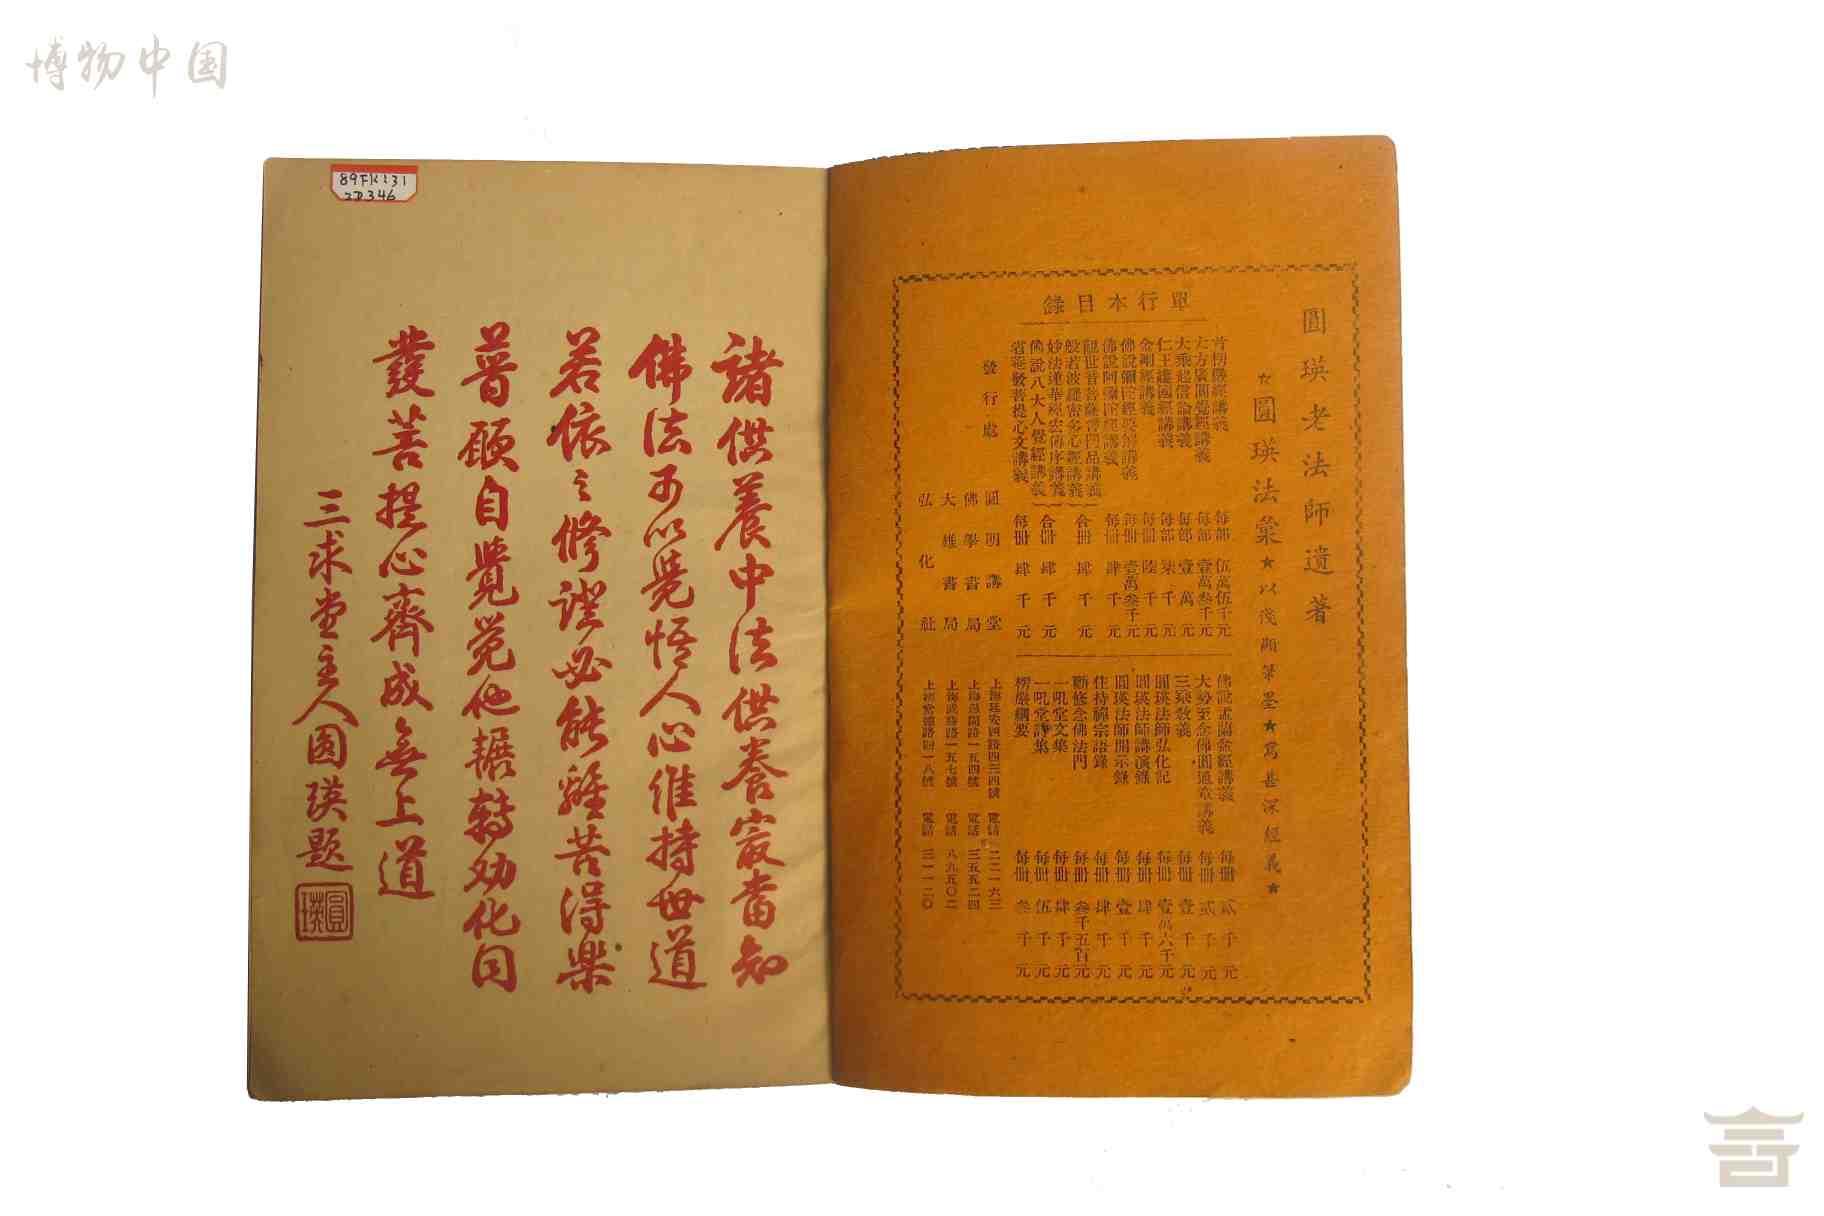 博物中国
圓瑛老法師遺著
☆圓瑛法彙★以淺顯筆墨★寫甚深經義★
單行本目錄
首楞嚴經講義 每部 伍萬伍千元
大方廣圓覺經講義 每部 壹萬叁千元
大乘起信論講義 每部 壹萬元
仁王護國經講義 每部 柒千元
金剛經講義 每冊 陸千元
佛說彌陀經要解講義 每冊 壹萬叁千元
佛說阿彌陀經講義 每冊 肆千元
觀世音菩薩普門品講義
般若波羅密多心經講義 合冊 肆千元
妙法蓮華經弘傳序講義
佛說八大人覺經講義 合冊 肆千元
省菴發菩提心文講義 每冊 肆千元
佛說盂蘭盆經講義 每冊 貳千元
大勢至念佛圓通章講義 每冊 貳千元
三乘教義 每冊 壹千元
圓瑛法師弘化記 每冊 壹萬六千元
圓瑛法師講演錄 每冊 肆千元
圓瑛法師開示錄 每冊 壹千元
住持禪宗語錄 每冊 肆千元
勸修念佛法門 每冊 叁千五百元
一吼堂文集 每冊 肆千元
一吼堂詩集 每冊 伍千元
楞嚴綱要 每冊 叁千元
發行處
圓明講堂 上海延安四路四三四號 電話 二二一六三
佛學書局 上海 路一五四號 電話 三五五二四
大雄書局 上海 路一五七號 電話 八九五〇二
弘化社 上海常德路四一八號 電話 三一一二〇
89FK131
2D346
諸供養中法供養最當知
佛法可以覺悟人心維持世道
若依之修證必能離苦得樂
普願自覺覺他輾轉劝化同
發菩提心齊成無上道
三求堂主人圓瑛題
圓瑛